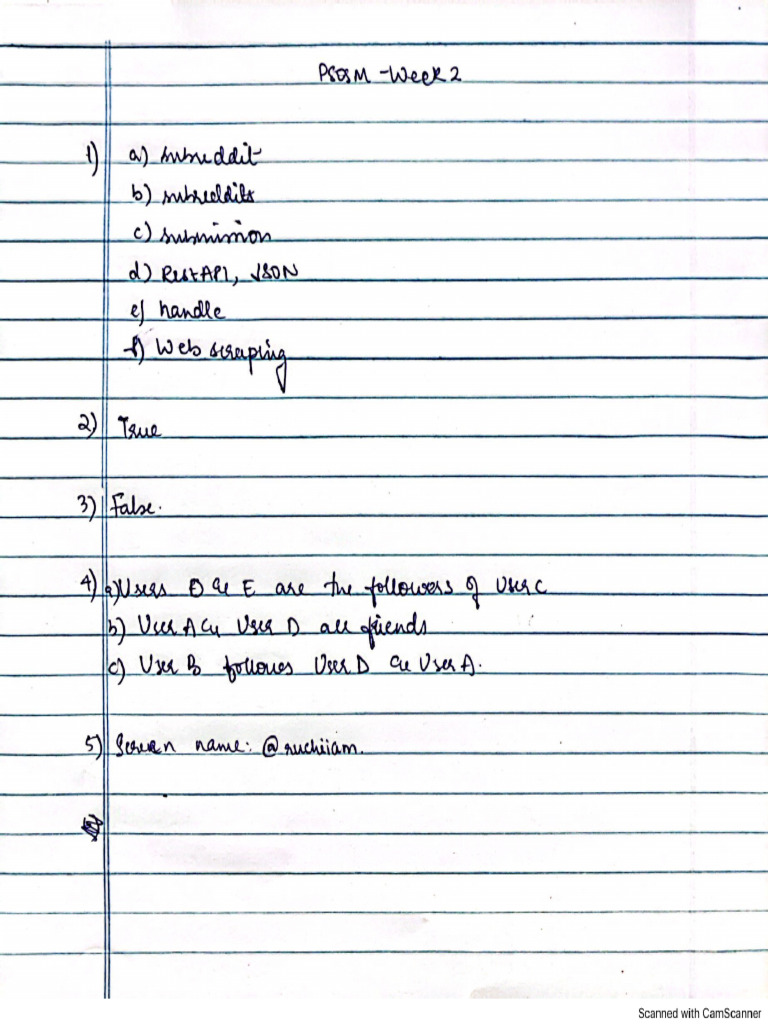 PSOSM - Week 2
1) a) subreddit
b) subreddits
c) submission
d) Rest API, JSON
e) handle
f) Web scraping
2) True
3) False.
4) a) Users D & E are the followers of User C
b) User A & User D are friends
c) User B follows User D & User A.
5) Screen name: @ruchiiam.
Scanned with CamScanner